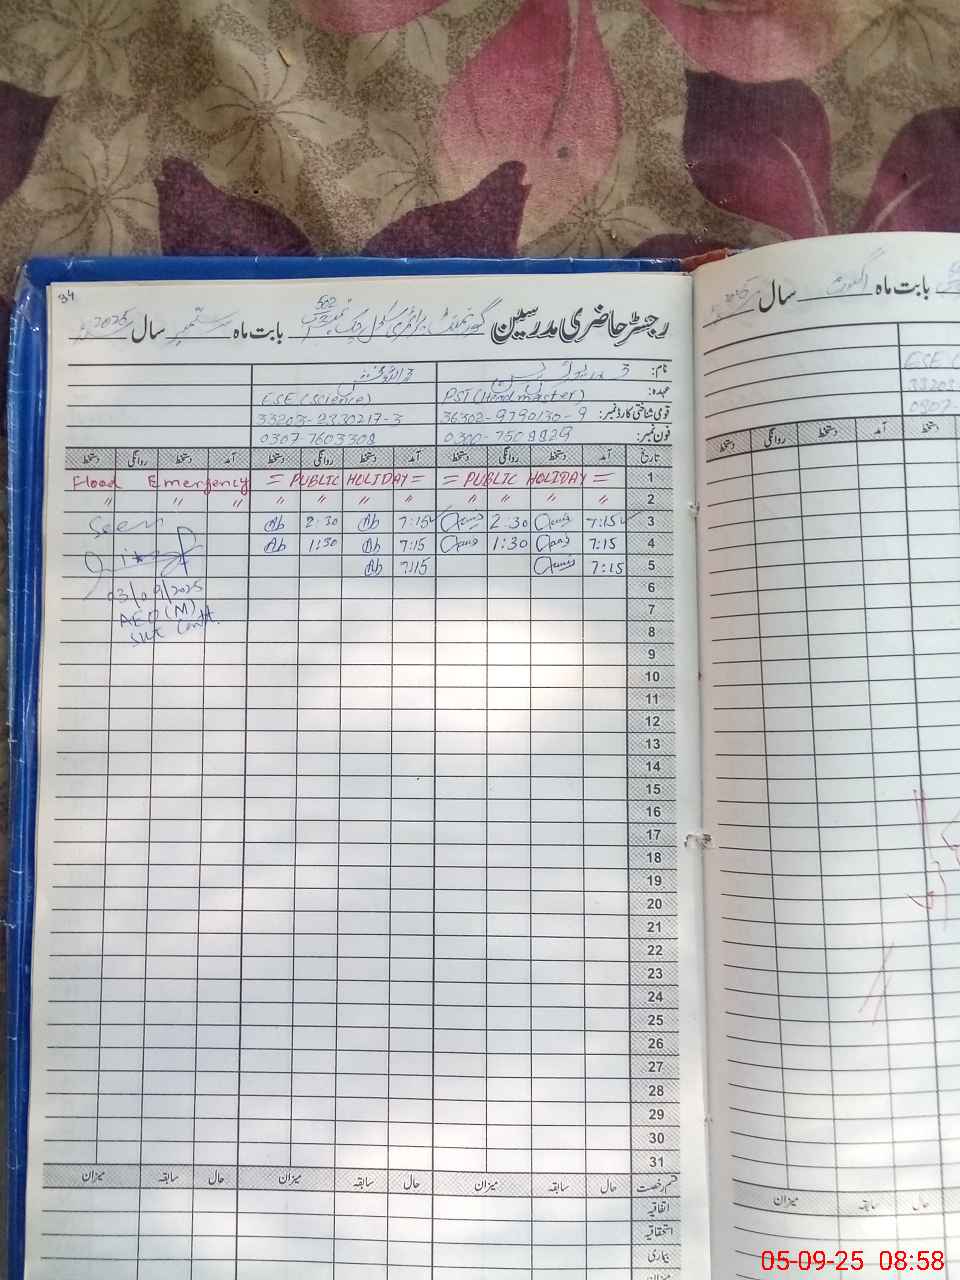 34
رجسٹر حاضری مدرسین گورنمنٹ پرائمری سکول چک نمبر 502 بابت ماہ ستمبر سال 2025
نام:
عہدہ: PST (Head master) ESE (Science)
قومی شناختی کارڈ نمبر: 36302-9790130-9 33203-2330217-3
فون نمبر: 0300-7508829 0307-7603308
تاریخ آمد دستخط روانگی دستخط آمد دستخط روانگی دستخط آمد دستخط روانگی دستخط
1 = PUBLIC HOLIDAY = = PUBLIC HOLIDAY = Flood Emergency
2 〃 〃 〃 〃 〃 〃 〃 〃 〃
3 7:15 2:30 7:15 2:30 Seen
4 7:15 1:30 7:15 1:30
5 7:15 7:15
03/09/2025
AEO (M)
6
7
8
9
10
11
12
13
14
15
16
17
18
19
20
21
22
23
24
25
26
27
28
29
30
31
قسم رخصت حال سابقہ میزان حال سابقہ میزان حال سابقہ میزان
اتفاقیہ
استحقاقیہ
بیماری
میزان
بابت ماہ اکتوبر سال 2025
ESE
33203
0307-
دستخط آمد دستخط روانگی دستخط
حال سابقہ میزان
05-09-25 08:58